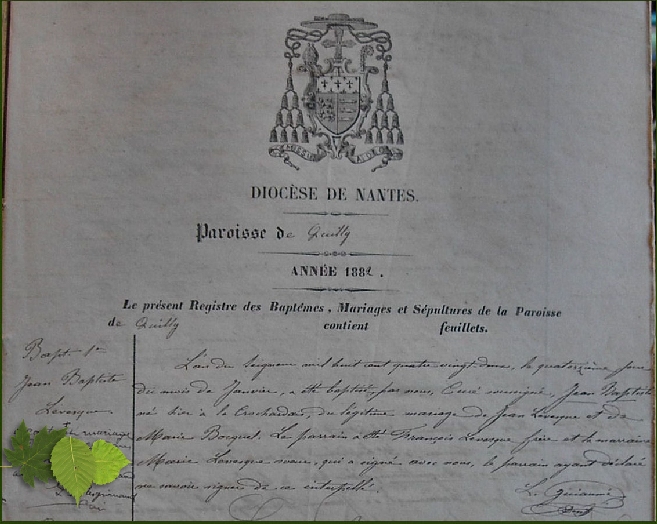 DIOCÈSE DE NANTES.
Paroisse de Quilly
ANNÉE 1882.
Le présent Registre des Baptêmes, Mariages et Sépultures de la Paroisse
de Quilly contient feuillets.
Bapt. 1er
Jean Baptiste
Levesque
mariage
L'an du Seigneur mil huit cent quatre vingt deux, le quatorzième jour
du mois de Janvier, a été baptisé par nous, Curé soussigné, Jean Baptiste
né hier à la du légitime mariage de Jean Levesque et de
Marie Bocquel. Le parrain a été François Levesque frère et la marraine
Marie Levesque sœur, qui a signé avec nous, le parrain ayant déclaré
ne savoir signer de ce interpellé.